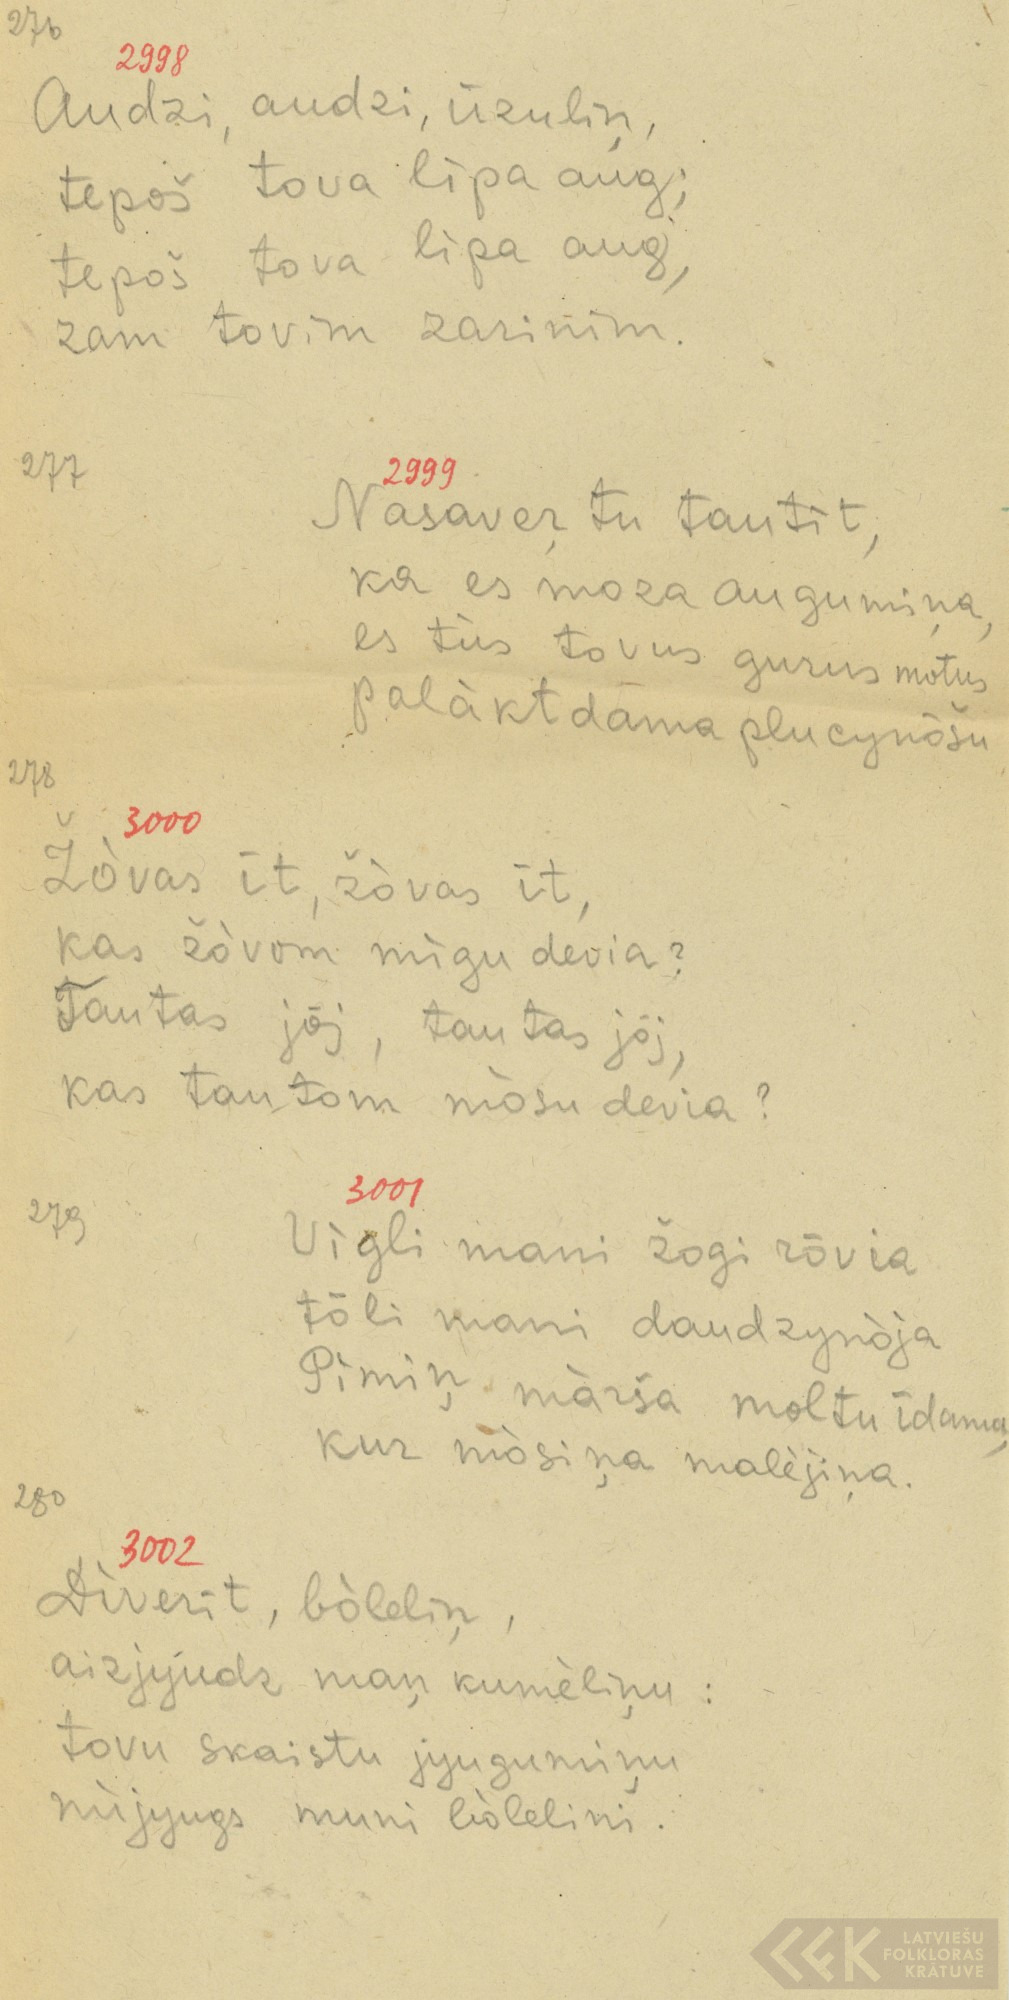 276
2998
Audzi, audzi, ūzuliņ,
tepoš tova līpa aug;
tepoš tova līpa aug,
zam tovim zarinim.
277
2999
Nasaveŗ tu tautīt,
ka es moza augumiņa,
es tùs tovus gurus motus
palàktdama plucynôšu
278
3000
Žòvas īt, žòvas īt,
kas žòvom mìgu devia?
Tautas jōj, tautas jōj,
kas tautom mòsu devia?
279
3001
Vìgli mani žogi rōvia
tōli mani daudzynòja
Pìmiņ màrša moltu īdama,
kur mòsiņa malèjiņa.
280
3002
Dìverīt, bòleliņ,
aizjyudz maņ kumèliņu:
tovu skaistu jyugumiņu
nùjyugs muni bòlelini.
LATVIEŠU
FOLKLORAS
KRĀTUVE